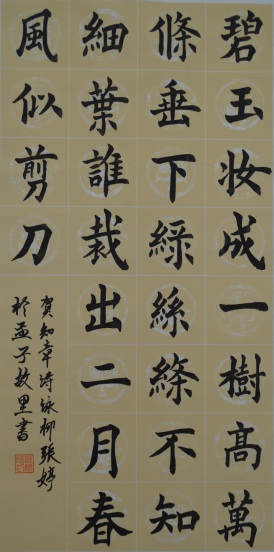 碧玉妆成一樹高萬
條垂下綠絲絛不知
細葉誰裁出二月春
風似剪刀
賀知章诗咏柳張婷
於孟子故里書